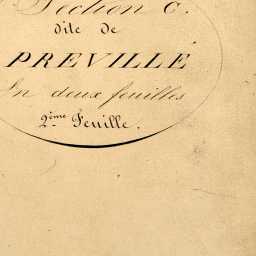 Section C.
dite de
PREVILLE
En deux feuilles
2ème Feuille.